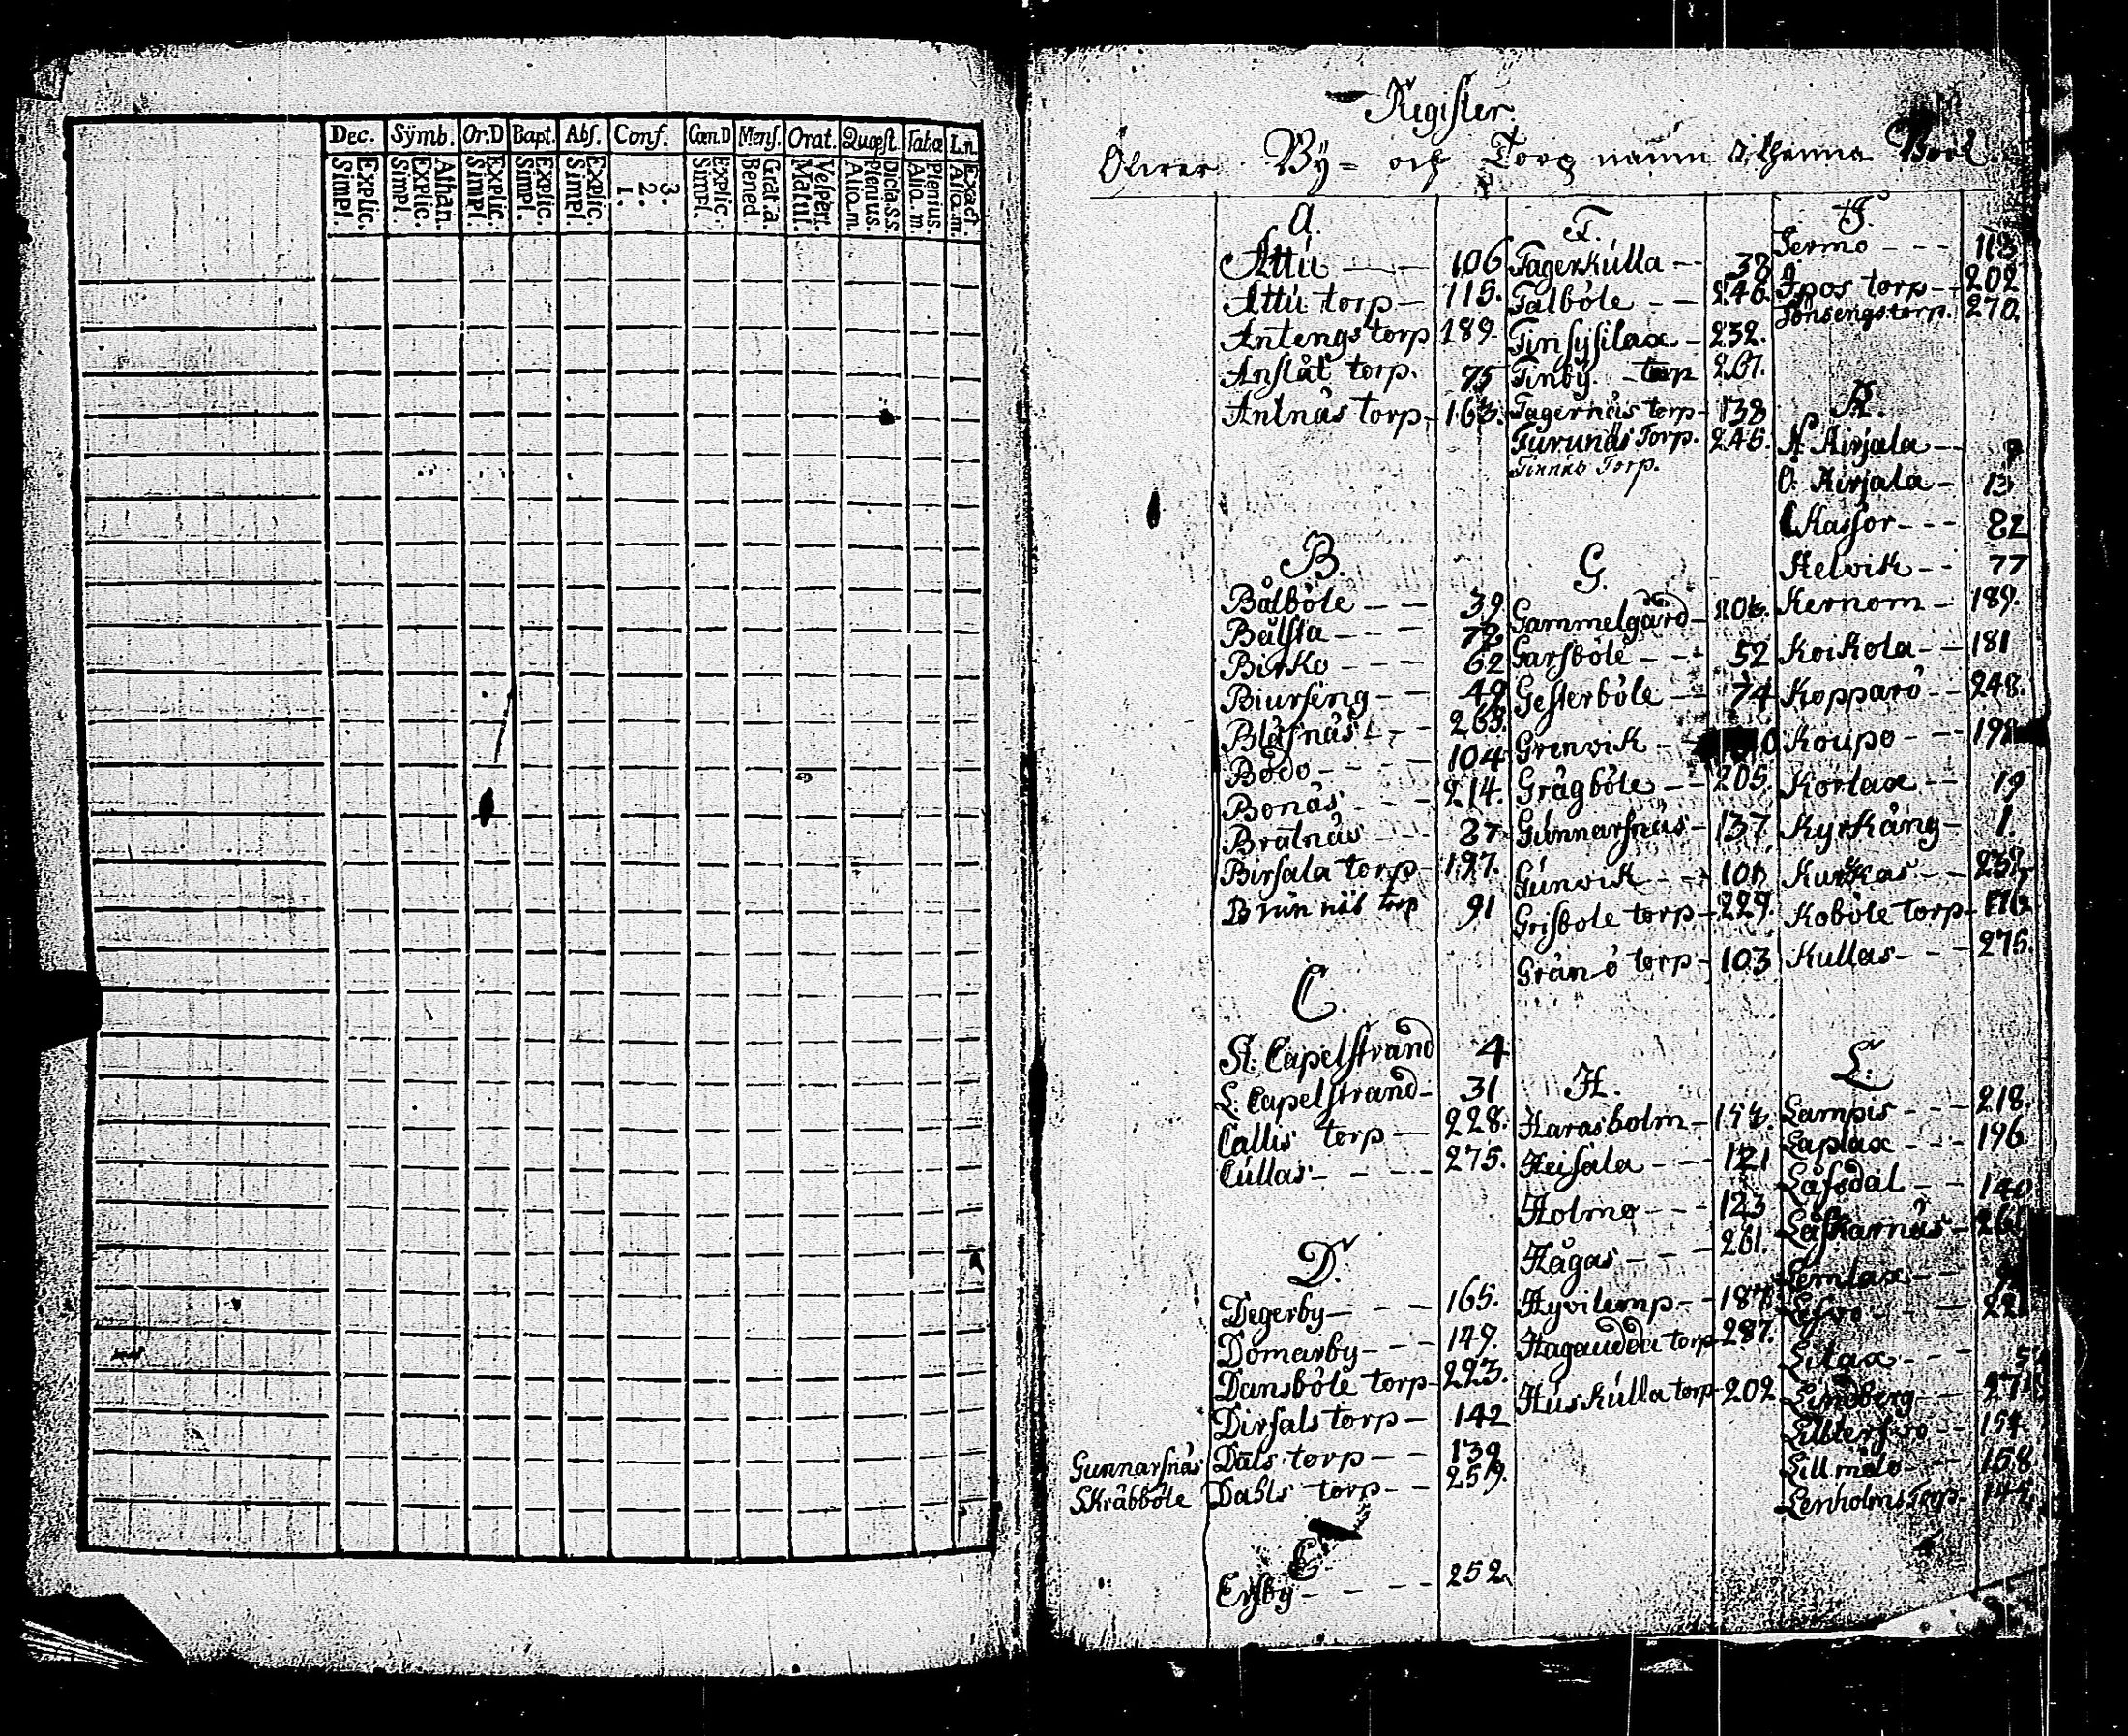 Dec. Sÿmb. Or.D Bapt. Abſ. Conf. Cœn.D Menſ. Orat. Quæſt. Tab.æ L.n.
Explic. Simpl. Athan. Explic. Simpl. Explic. Simpl. Explic. Simpl. Explic. Simpl. 3. 2. 1. Explic. Simpl. Grat.a. Bened. Veſpert. Matut. Dicta.S.S. Plenius. Aliq.m. Plenius. Aliq.m. Exact. Aliq.m.
Regiſter.
Öfwer Bÿ= och Torp namn i thenna Bok.
A.
Attu 106
Attu torp 115.
Antengs torp 189.
Anſlåt torp. 75
Antnäs torp 163.
B.
Bålböle 39
Bålſta 72
Birko 62
Biurſeng 49
Bläſnäs 263.
Bodo 104
Bonäs 214.
Bratnäs 87
Birſala torp 197.
Brunnäs torp 91
C.
St. Capelſtrand 4
L. Capelſtrand 31
Callis torp 228.
Cullas 275.
D.
Degerby 165.
Domarby 149.
Dansböle torp 223.
Dirſals torp 142
Gunnarſnäs Dals torp 139
Skräbböle Dahls torp 259.
E.
Erſby 252
F.
Fagerkulla 38
Falböle 246.
Finſyſilax 232.
Finby torp 267.
Fagernäs torp 138
Furunäs Torp. 245.
Finnäs Torp.
G.
Gammelgård
Garſböle 52
Geſterböle 74
Grenvik
Grågböle 205.
Gunnarſnäs 137
Gunvik 101
Griſbole torp 229.
Grån-ö torp 103
H.
Harasholm
Heiſala 121
Holmo 123
Hågas 261.
Hyvilemp 187
Hagaudda torp 287.
Huskulla torp 202
J.
Jermo 118
Jpos torp 202
Jonsengs torp. 270.
K.
N. Kirjala
Ö. Kirjala 13
Kaſſor 82
Kelvik 77
Kernom 189.
Koikola 181
Kopparö 248.
Koupo
Korlax 19
Kyrkäng 1.
Kurkas
Koböle torp
Kullas 275.
L.
Lampis 218.
Laplax 196
Låfsdal 140
Laſkarnäs
Lemlax
Lefvo
Lilax
Lindberg
Lilltervo
Lill.mälo 158
Lenholms Torp.